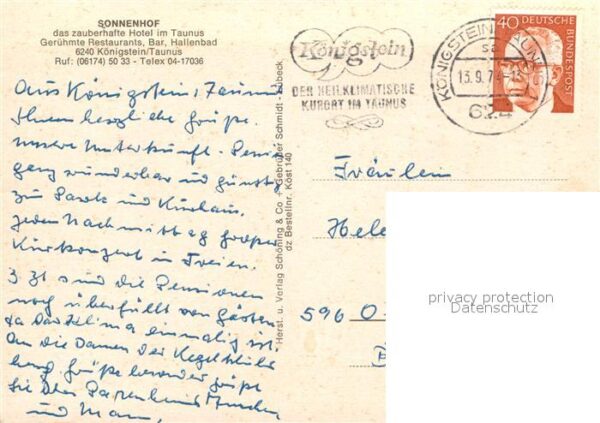 SONNENHOF
das zauberhafte Hotel im Taunus
Gerühmte Restaurants, Bar, Hallenbad
6240 Königstein/Taunus
Ruf: (06174) 50 33 - Telex 04-17036
Aus Königstein, Taunus
herzliche Grüße.
unsere Unterkunft - Pension
ganz wunderbar und günstig
zum Park und Kurhaus.
jeden Nachmittag großes
Kurkonzert im Freien.
z Zt sind die Pensionen
noch überfüllt von Gästen
da das Klima einmalig ist.
An die Damen der Kegel
besonders
und Mann
Herst. u. Verlag Schöning & Co + Gebrüder Schmidt - Lübeck
dz Bestellnr. Köst 140
Königstein
DER HEILKLIMATISCHE
KURORT IM TAUNUS
KÖNIGSTEIN TAUNUS
sa
13.9.74
624
40 DEUTSCHE
BUNDESPOST
Fräulein
Hele
590 O
privacy protection
Datenschutz